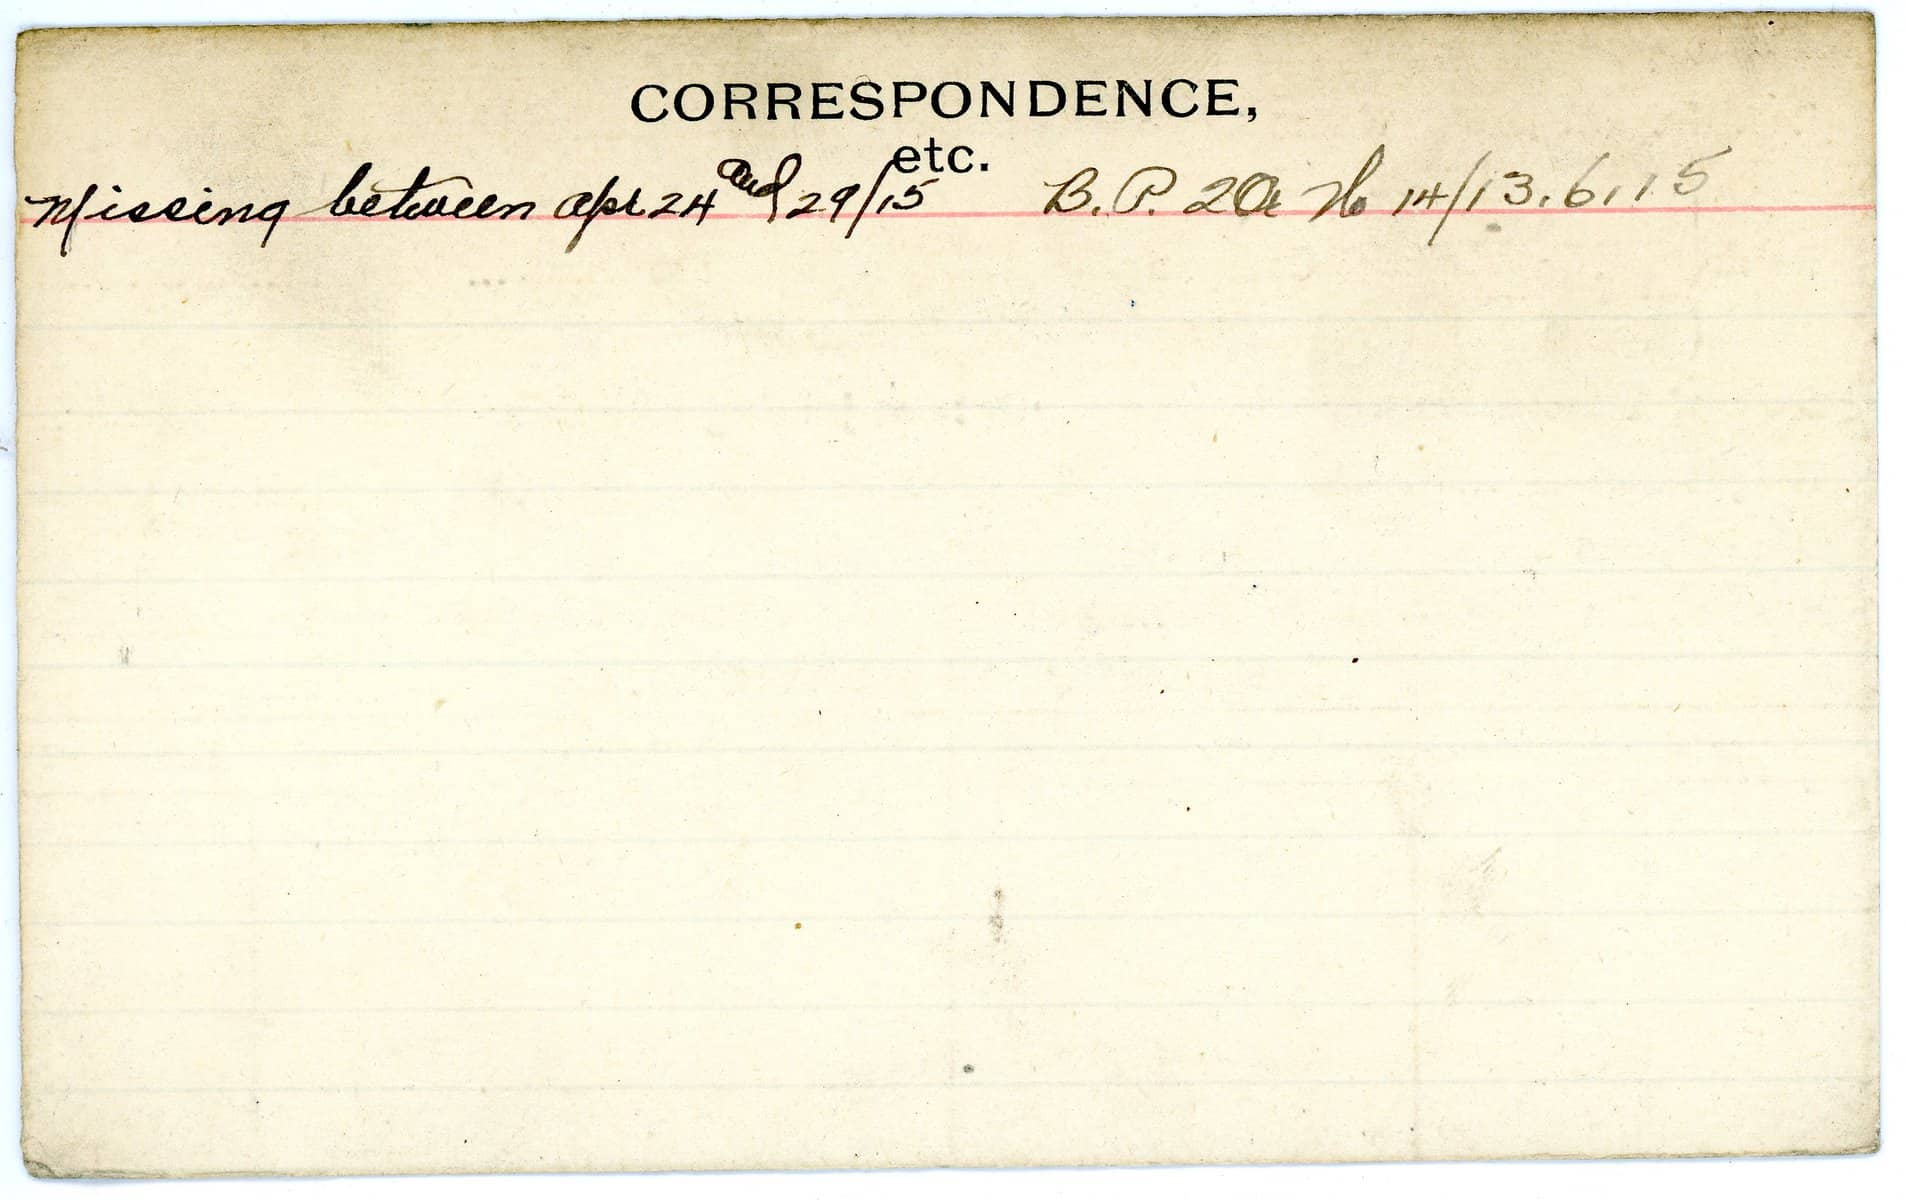 CORRESPONDENCE,
etc.
Missing between Apr 24 and 29/15 B. P. 2 Or No 14/13.6.15